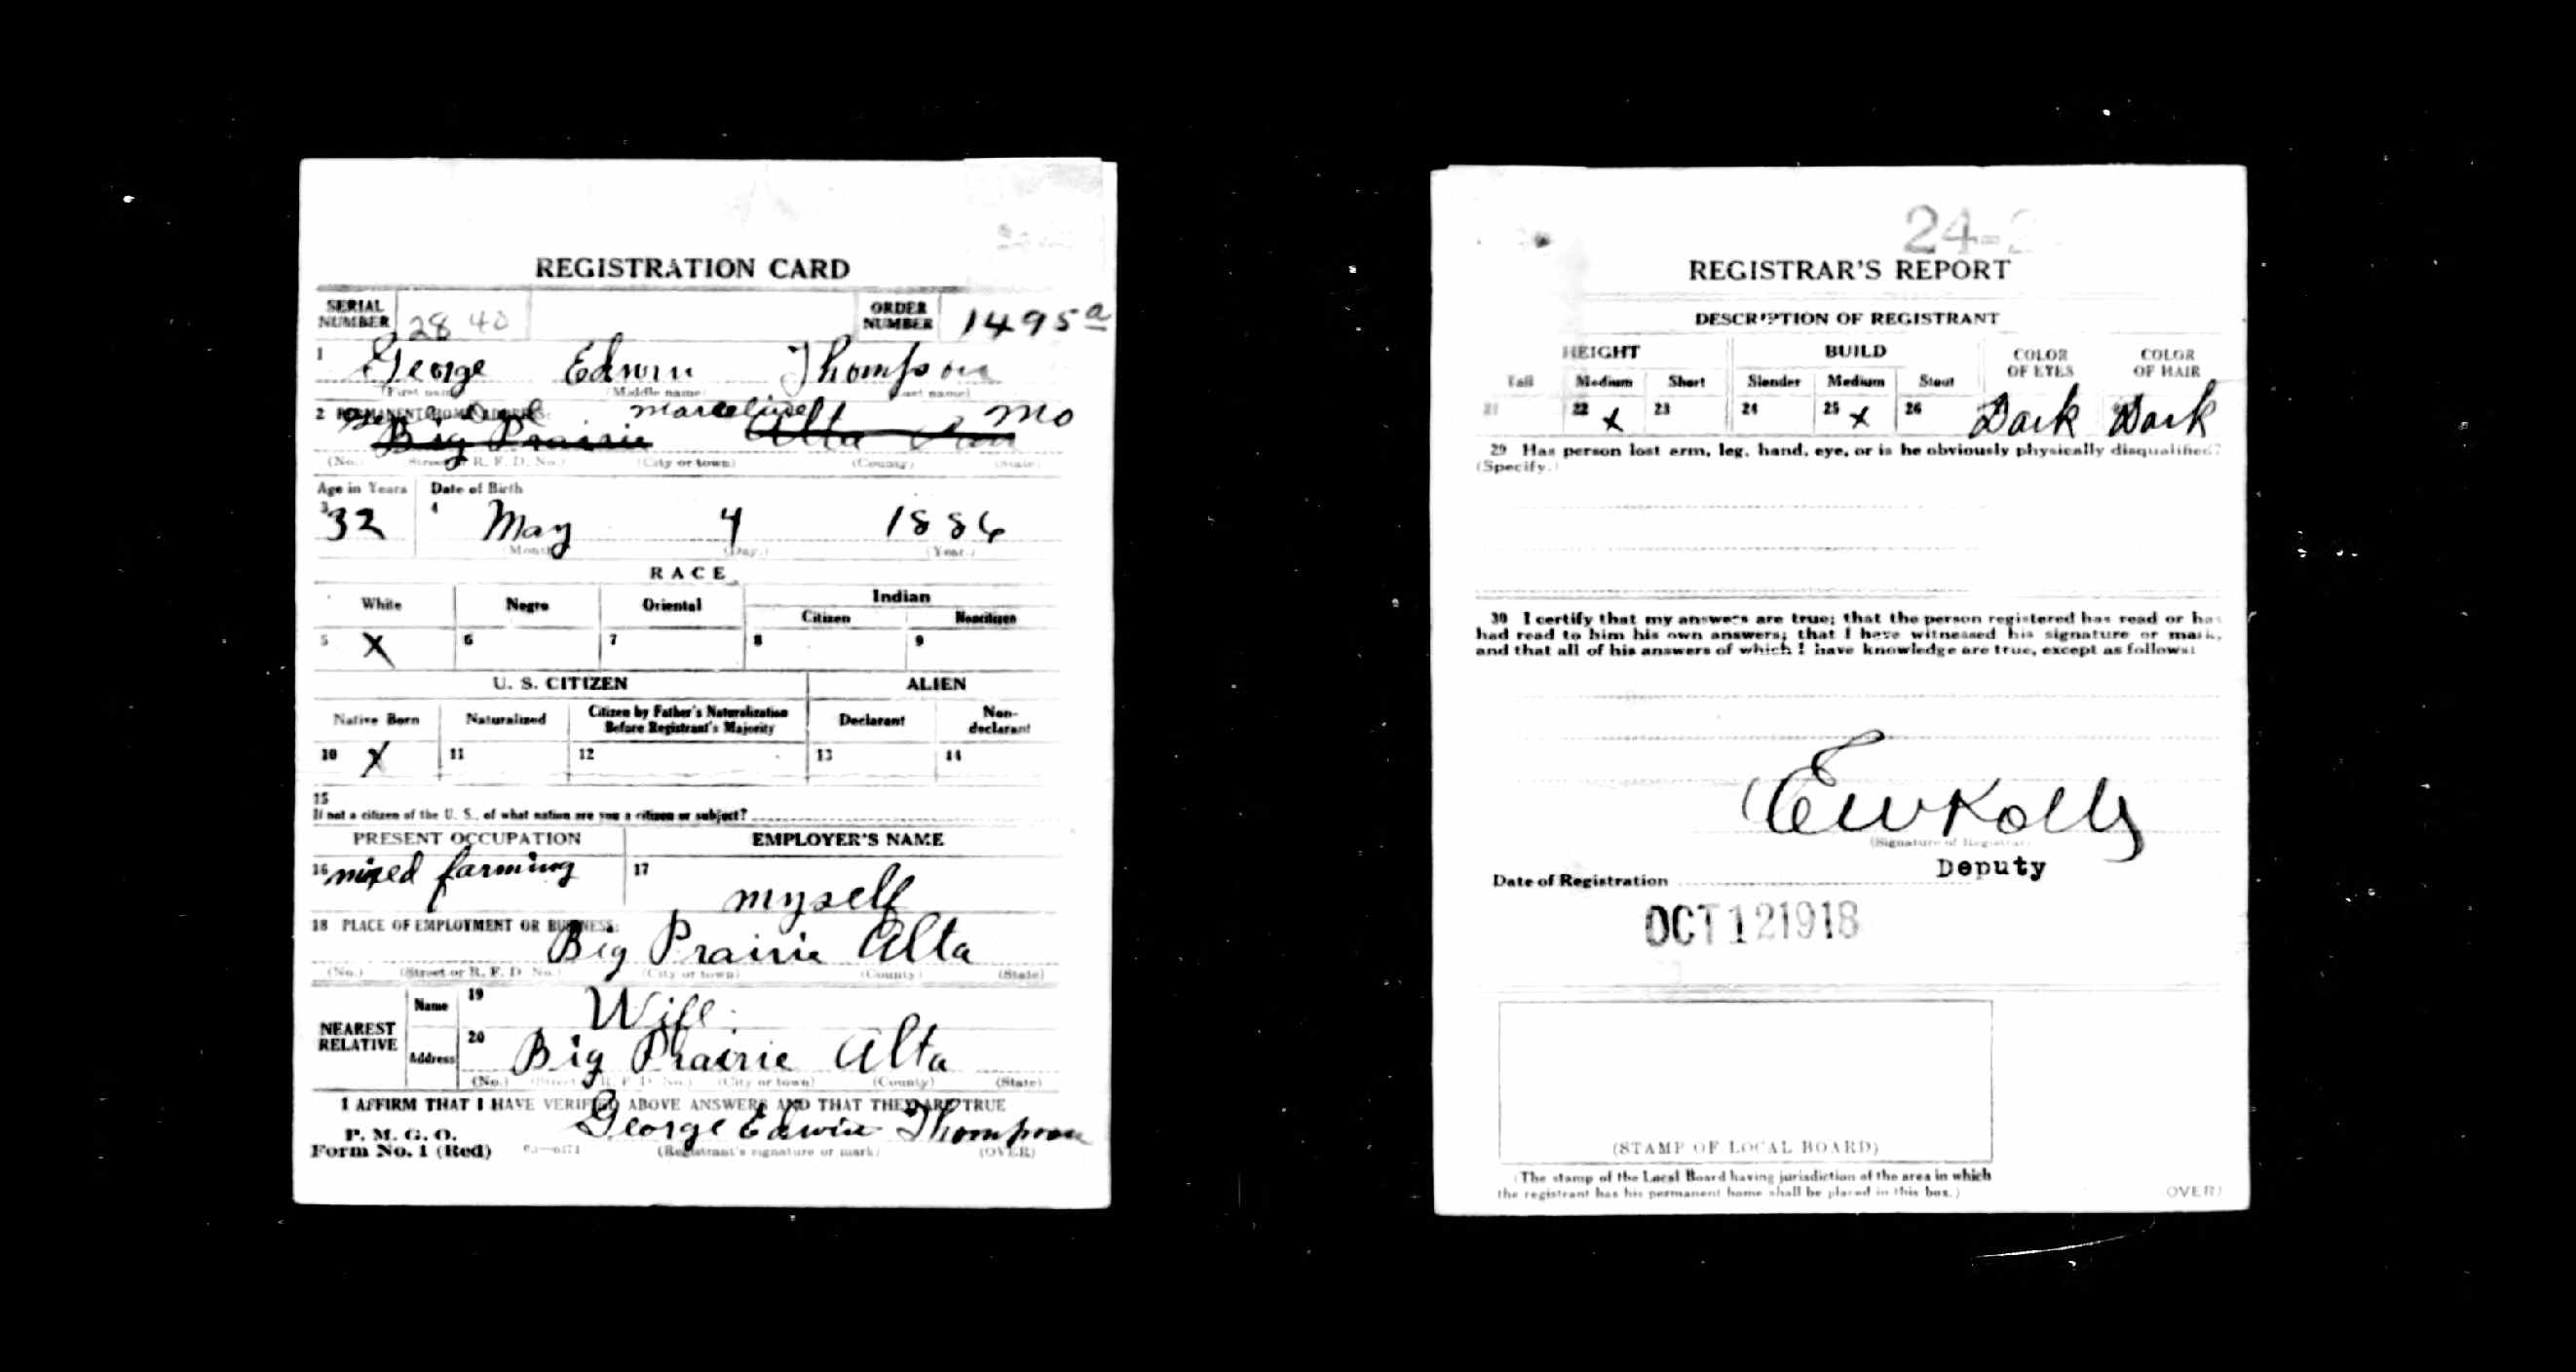 REGISTRATION CARD
SERIAL NUMBER 2840 ORDER NUMBER 1495 a
1 George Edwin Thompson
(First name) (Middle name) (Last name)
2 PERMANENT HOME ADDRESS:
Marceline Mo
Big Prairie Alta
(No.) (Street or R. F. D. No.) (City or town) (County) (State)
Age in Years Date of Birth
3 32 4 May 4 1886
(Month.) (Day.) (Year.)
RACE
White Negro Oriental Indian
Citizen Noncitizen
5 X 6 7 8 9
U. S. CITIZEN ALIEN
Native Born Naturalized Citizen by Father's Naturalization Before Registrant's Majority Declarant Non-declarant
10 X 11 12 13 14
15
If not a citizen of the U. S., of what nation are you a citizen or subject?
PRESENT OCCUPATION EMPLOYER'S NAME
16 mixed farming 17 myself
18 PLACE OF EMPLOYMENT OR BUSINESS:
Big Prairie Alta
(No.) (Street or R. F. D. No.) (City or town) (County) (State)
NEAREST RELATIVE
Name 19
Address 20 Big Prairie Alta
(No.) (Street or R. F. D. No.) (City or town) (County) (State)
I AFFIRM THAT I HAVE VERIFIED ABOVE ANSWERS AND THAT THEY ARE TRUE
P. M. G. O.
Form No. 1 (Red) George Edwin Thompson
(Registrant's signature or mark) (OVER)
24-
REGISTRAR'S REPORT
DESCRIPTION OF REGISTRANT
HEIGHT BUILD COLOR OF EYES COLOR OF HAIR
Tall Medium Short Slender Medium Stout
21 22 X 23 24 25 X 26 Dark Dark
29 Has person lost arm, leg, hand, eye, or is he obviously physically disqualified?
(Specify.)
30 I certify that my answers are true; that the person registered has read or has
had read to him his own answers; that I have witnessed his signature or mark,
and that all of his answers of which I have knowledge are true, except as follows:
(Signature of Registrar)
Deputy
Date of Registration
OCT 12 1918
(STAMP OF LOCAL BOARD)
(The stamp of the Local Board having jurisdiction of the area in which
the registrant has his permanent home shall be placed in this box.)
(OVER)